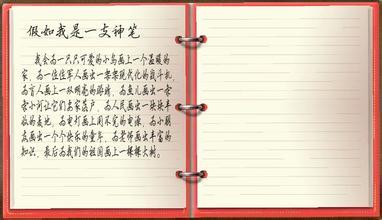 假如我是一支神笔
我会为一只只可爱的小鸟画上一个温暖的
家，为一位位军人画出一架架现代化的战斗机，
为盲人画上一双明亮的眼睛，为鱼儿画出一条
条小河让它们安家落户，为人民画出一块块丰
收的麦地，为电灯画上用不完的电源，为小朋
友画出一个个快乐的童年，为老师画出丰富的
知识，最后为我们的祖国画上一棵棵大树。